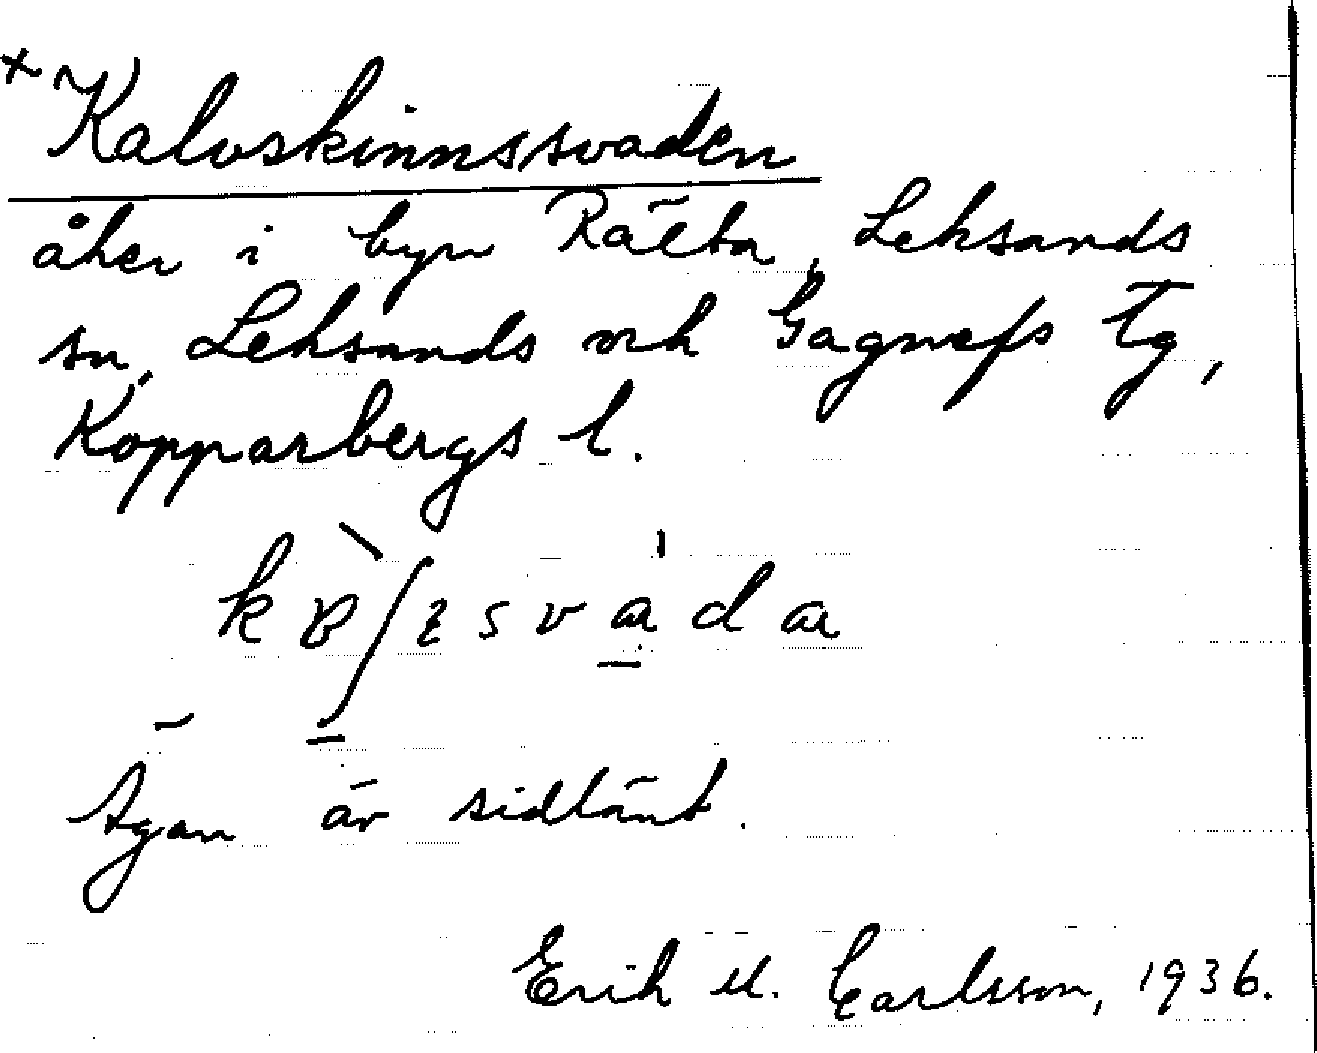 +Kalvskinnssvaden
åker i byn Rälta, Leksands
sn, Leksands och Gagnefs tg,
Kopparbergs l.
Ägan är sidlänt.
Erik M. Carlsson, 1936.